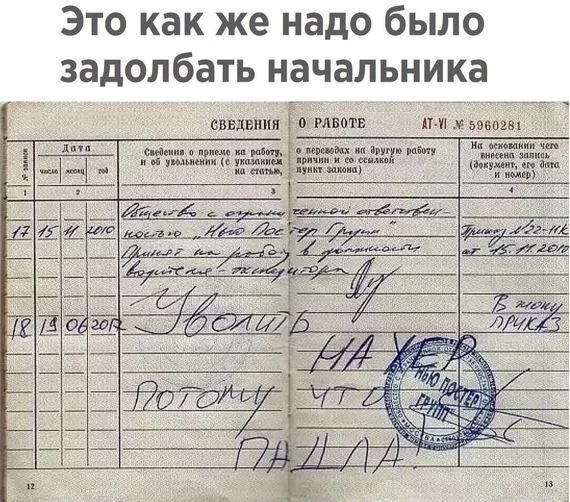 Это как же надо было
задолбать начальника
СВЕДЕНИЯ О РАБОТЕ АТ-VI № 5960281
№ записи
Дата
число месяц год
Сведения о приеме на работу, о переводах на другую работу
и об увольнении (с указанием причин и со ссылкой
на статью, пункт закона)
На основании чего
внесена запись
(документ, его дата
и номер)
1 2 3 4
Общество с ограниченной ответствен-
17 15 11 2010 ностью "Нью Постер Групп" Приказ №22-НК
Принят на работу в должности от 15.11.2010
водителя-экспедитора
18 19 06 2012 Уволить В жопу
ПРИКАЗ
НАХЕР
Потому ЧТО
ПАДЛА!
НЬЮ ПОСТЕР
ГРУПП
МОСКВА
12 13